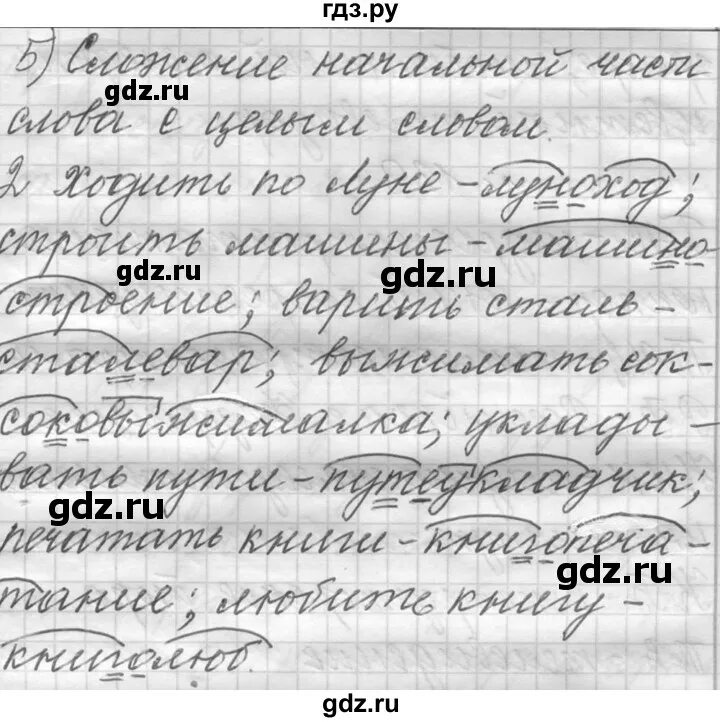 гдз.ру
5) Сложение начальной части
gdz.ru
слова с целым словом.
2 ходить по Луне - луноход;
строить машины - машино
gdz.ru gdz.ru
строение; варить сталь -
сталевар; выжимать сок -
соковыжималка; уклады -
вать пути - путеукладчик;
gdz.ru
печатать книги - книгопеча -
gdz.ru
тание; любить книгу -
книголюб.
gdz.ru